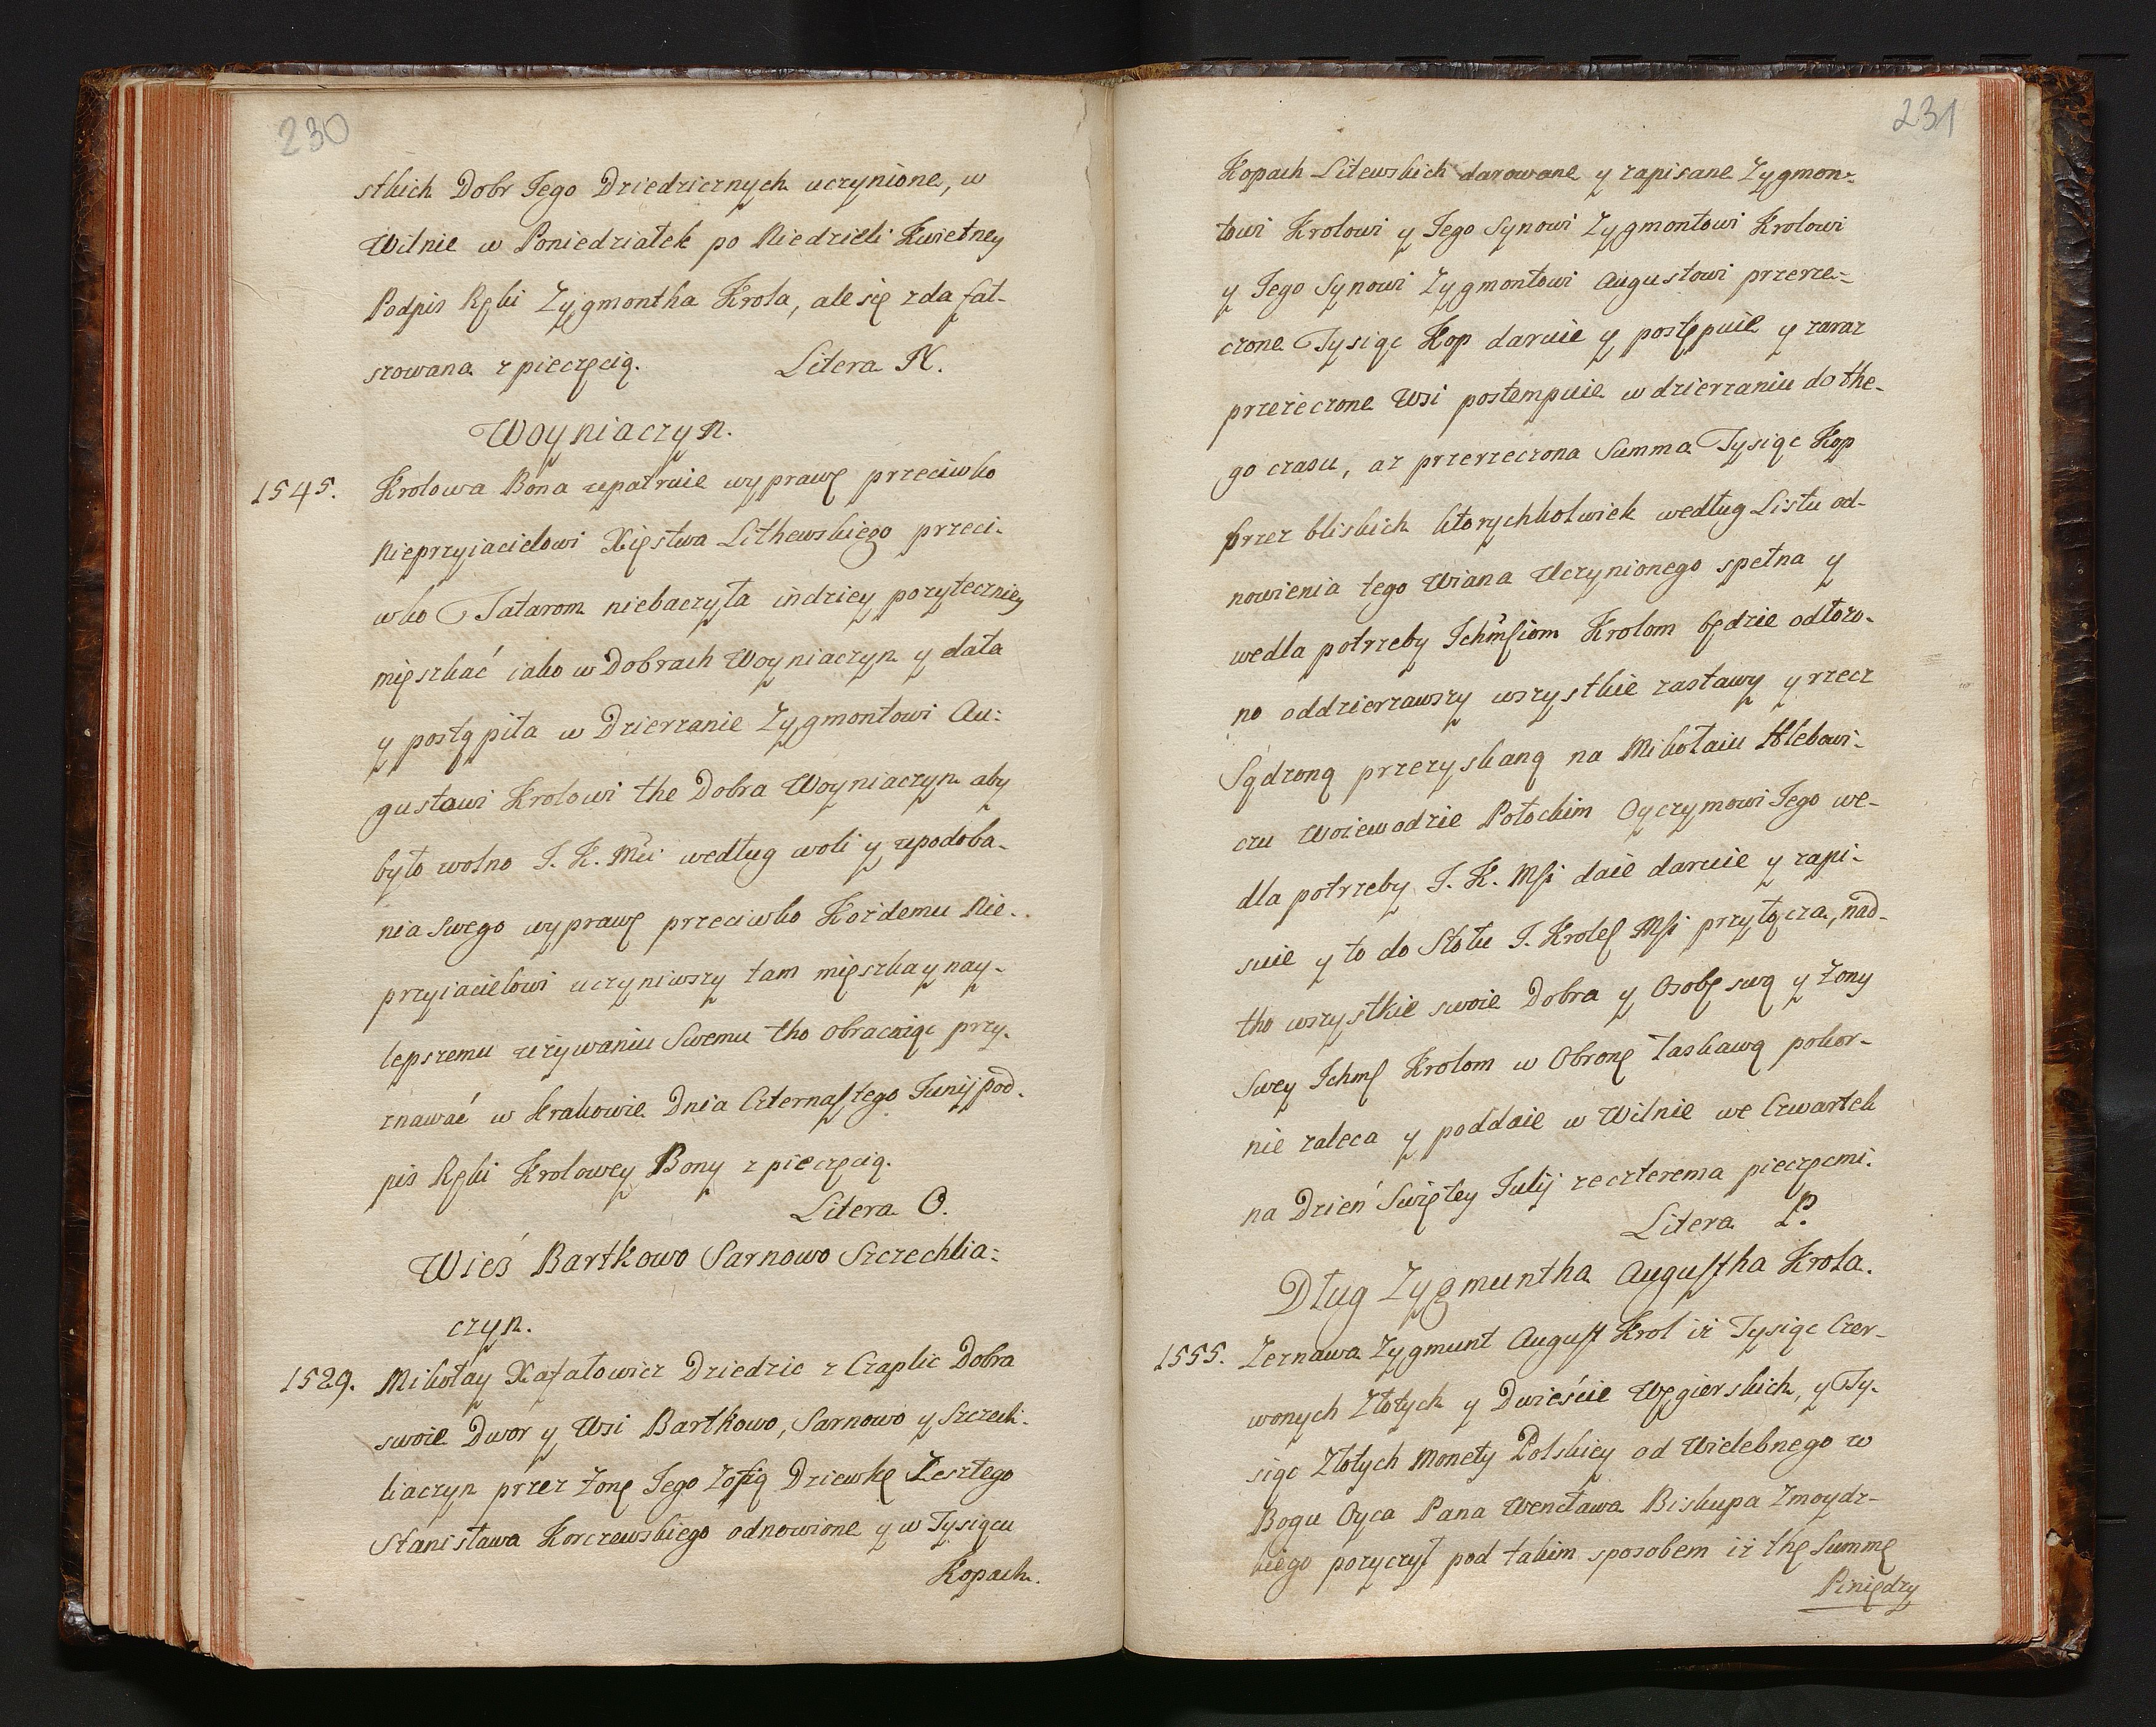 230
stkich Dobr Jego Dziedzicznych uczynione, w
Wilnie w Poniedziałek po Niedzieli Kwietney
Podpis Ręki Zygmontha Krola, ale się zda fał-
szowana z pieczęcią. Litera N.
Woyniaczyn.
1545. Krolowa Bona upatruie wyprawę przeciwko
Nieprzyiacielowi Xięstwa Lithewskiego przeci-
wko Tatarom niebaczyła indziey pozyteczniey
mięszkać iako w Dobrach Woyniaczyn y dała
y postąpiła w Dzierzanie Zygmontowi Au-
gustowi Krolowi the Dobra Woyniaczyn aby
było wolno J. K. Mci według woli y upodoba-
nia Swego wyprawę przeciwko Kozdemu Nie-
przyiacielowi uczyniwszy tam mięszkay nay-
lepszemu uzywaniu Swemu tho obracaiąc przy-
znawać w Krakowie Dnia Czternastego Junij pod-
pis Ręki Krolowey Bony z pieczęcią.
Litera O.
Wieś Bartkowo Sarnowo Szczechlia-
czyn.
1529. Mikołay Rafałowicz Dziedzic z Czaplic Dobra
swoie Dwor y Wsi Bartkowo, Sarnowo y Szczech-
liaczyn przez Zonę Jego Zofią Dziewkę Zeszłego
Stanisława Korczewskiego odnowione y w Tysiącu
Kopach.
231
Kopach Litewskich darowane y zapisane Zygmon-
towi Krolowi y Jego Synowi Zygmontowi Krolowi
y Jego Synowi Zygmontowi Augustowi przerze-
czone Tysiąc Kop daruie y postępuie y zaraz
przerzeczone Wsi postempuie w dzierzaniu do the-
go czasu, az przerzeczona Summa Tysiąc Kop
przez bliskich ktorychkolwiek według Listu od-
nowienia tego Wiana Uczynionego spełna y
wedla potrzeby Ichmsiom Krolom będzie odłozo-
no oddzierzawszy wszystkie zastawy y rzecz
Sądzoną przezyskaną na Mikołaiu Hlebowi-
czu Woiewodzie Połockim Oyczymowi Jego we-
dla potrzeby J. K. Msi daie daruie y zapi-
suie y to do Stołu J. Krolę Msi przyłącza, nad-
tho wszystkie swoie Dobra y Osobę swą y Zony
Swey Ichms Krolom w Obronę łaskawą pokor-
nie zaleca y poddaie w Wilnie we Czwartek
na Dzień Swiętey Julij ze czterema pieczęcmi.
Litera P.
Dług Zygmuntha Augustha Krola.
1555. Zeznawa Zygmunt August Krol iż Tysiąc Czer-
wonych Złotych y Dwieście Węgierskich, y Ty-
siąc Złotych Monety Polskiey od Wielebnego w
Bogu Oyca Pana Wencława Biskupa Zmoydz-
kiego pozyczył pod takim sposobem iż thę Summę
Piniędzy